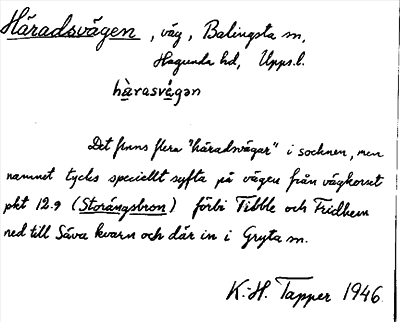 Häradsvägen, väg, Balingsta sn,
Hagunda hd, Upps.l.
hàrasvä́gən
Det finns flera "häradsvägar" i socknen, men
namnet tycks speciellt syfta på vägen från vägkorset
pkt 12.9 (Storängsbron) förbi Tibble och Fridhem
ned till Säva kvarn och där in i Gryta sn.
K.-H. Tapper 1946